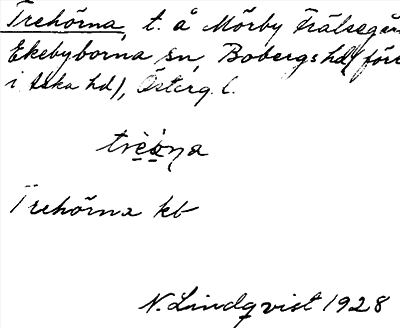 Trehörna, t. å Mörby Frälsegår
Ekebyborna sn, Bobergs hd (före
i Aska hd), Österg. l.
Trehörna kb
N. Lindqvist 1928